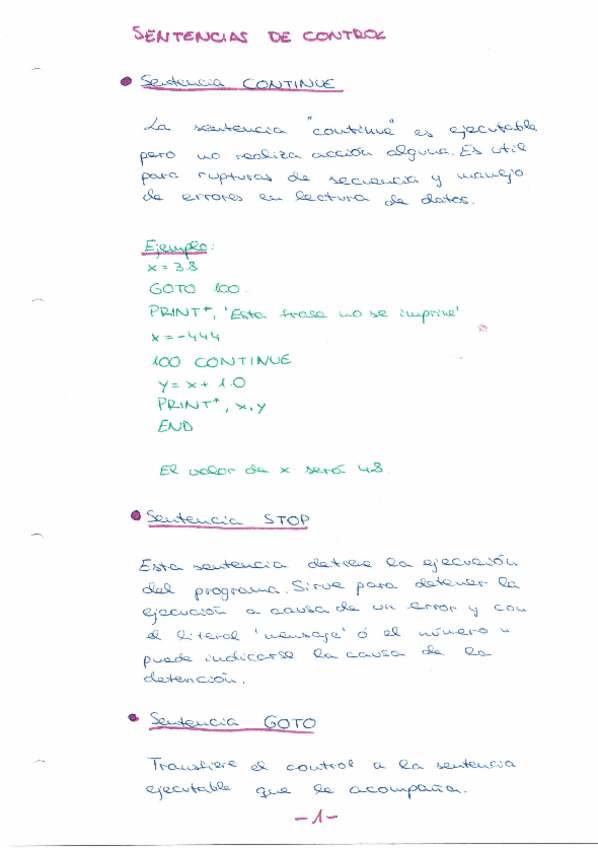 SENTENCIAS DE CONTROL
Sentencia CONTINUE
La sentencia "continue" es ejecutable
pero no realiza acción alguna. Es util
para rupturas de secuencia y manejo
de errores en lectura de datos.
Ejemplo:
x = 3.8
GOTO 100
PRINT*, 'Esta frase no se imprime'
x = -444
100 CONTINUE
y = x + 1.0
PRINT*, x,y
END
El valor de x será 4.8
Sentencia STOP
Esta sentencia detiene la ejecución
del programa. Sirve para detener la
ejecución a causa de un error y con
el literal 'mensaje' ó el número n
puede indicarse la causa de la
detención.
Sentencia GOTO
Transfiere el control a la sentencia
ejecutable que le acompaña.
-1-